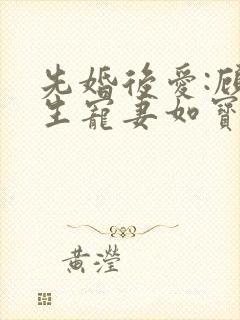 先婚後愛:顧
生寵妻如寶
黃瀅